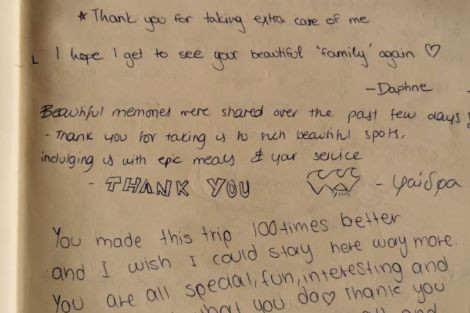 * Thank you for taking extra care of me
I hope I get to see your beautiful 'family' again ♡
- Daphne
Beautiful memories were shared over the past few days!
- Thank you for taking us to such beautiful spots,
indulging us with epic meals & your service
- THANK YOU - φαίδρα
You made this trip 100 times better
and I wish I could stay here way more.
You are all special, fun, interesting and
that you do ♡ Thank you
and